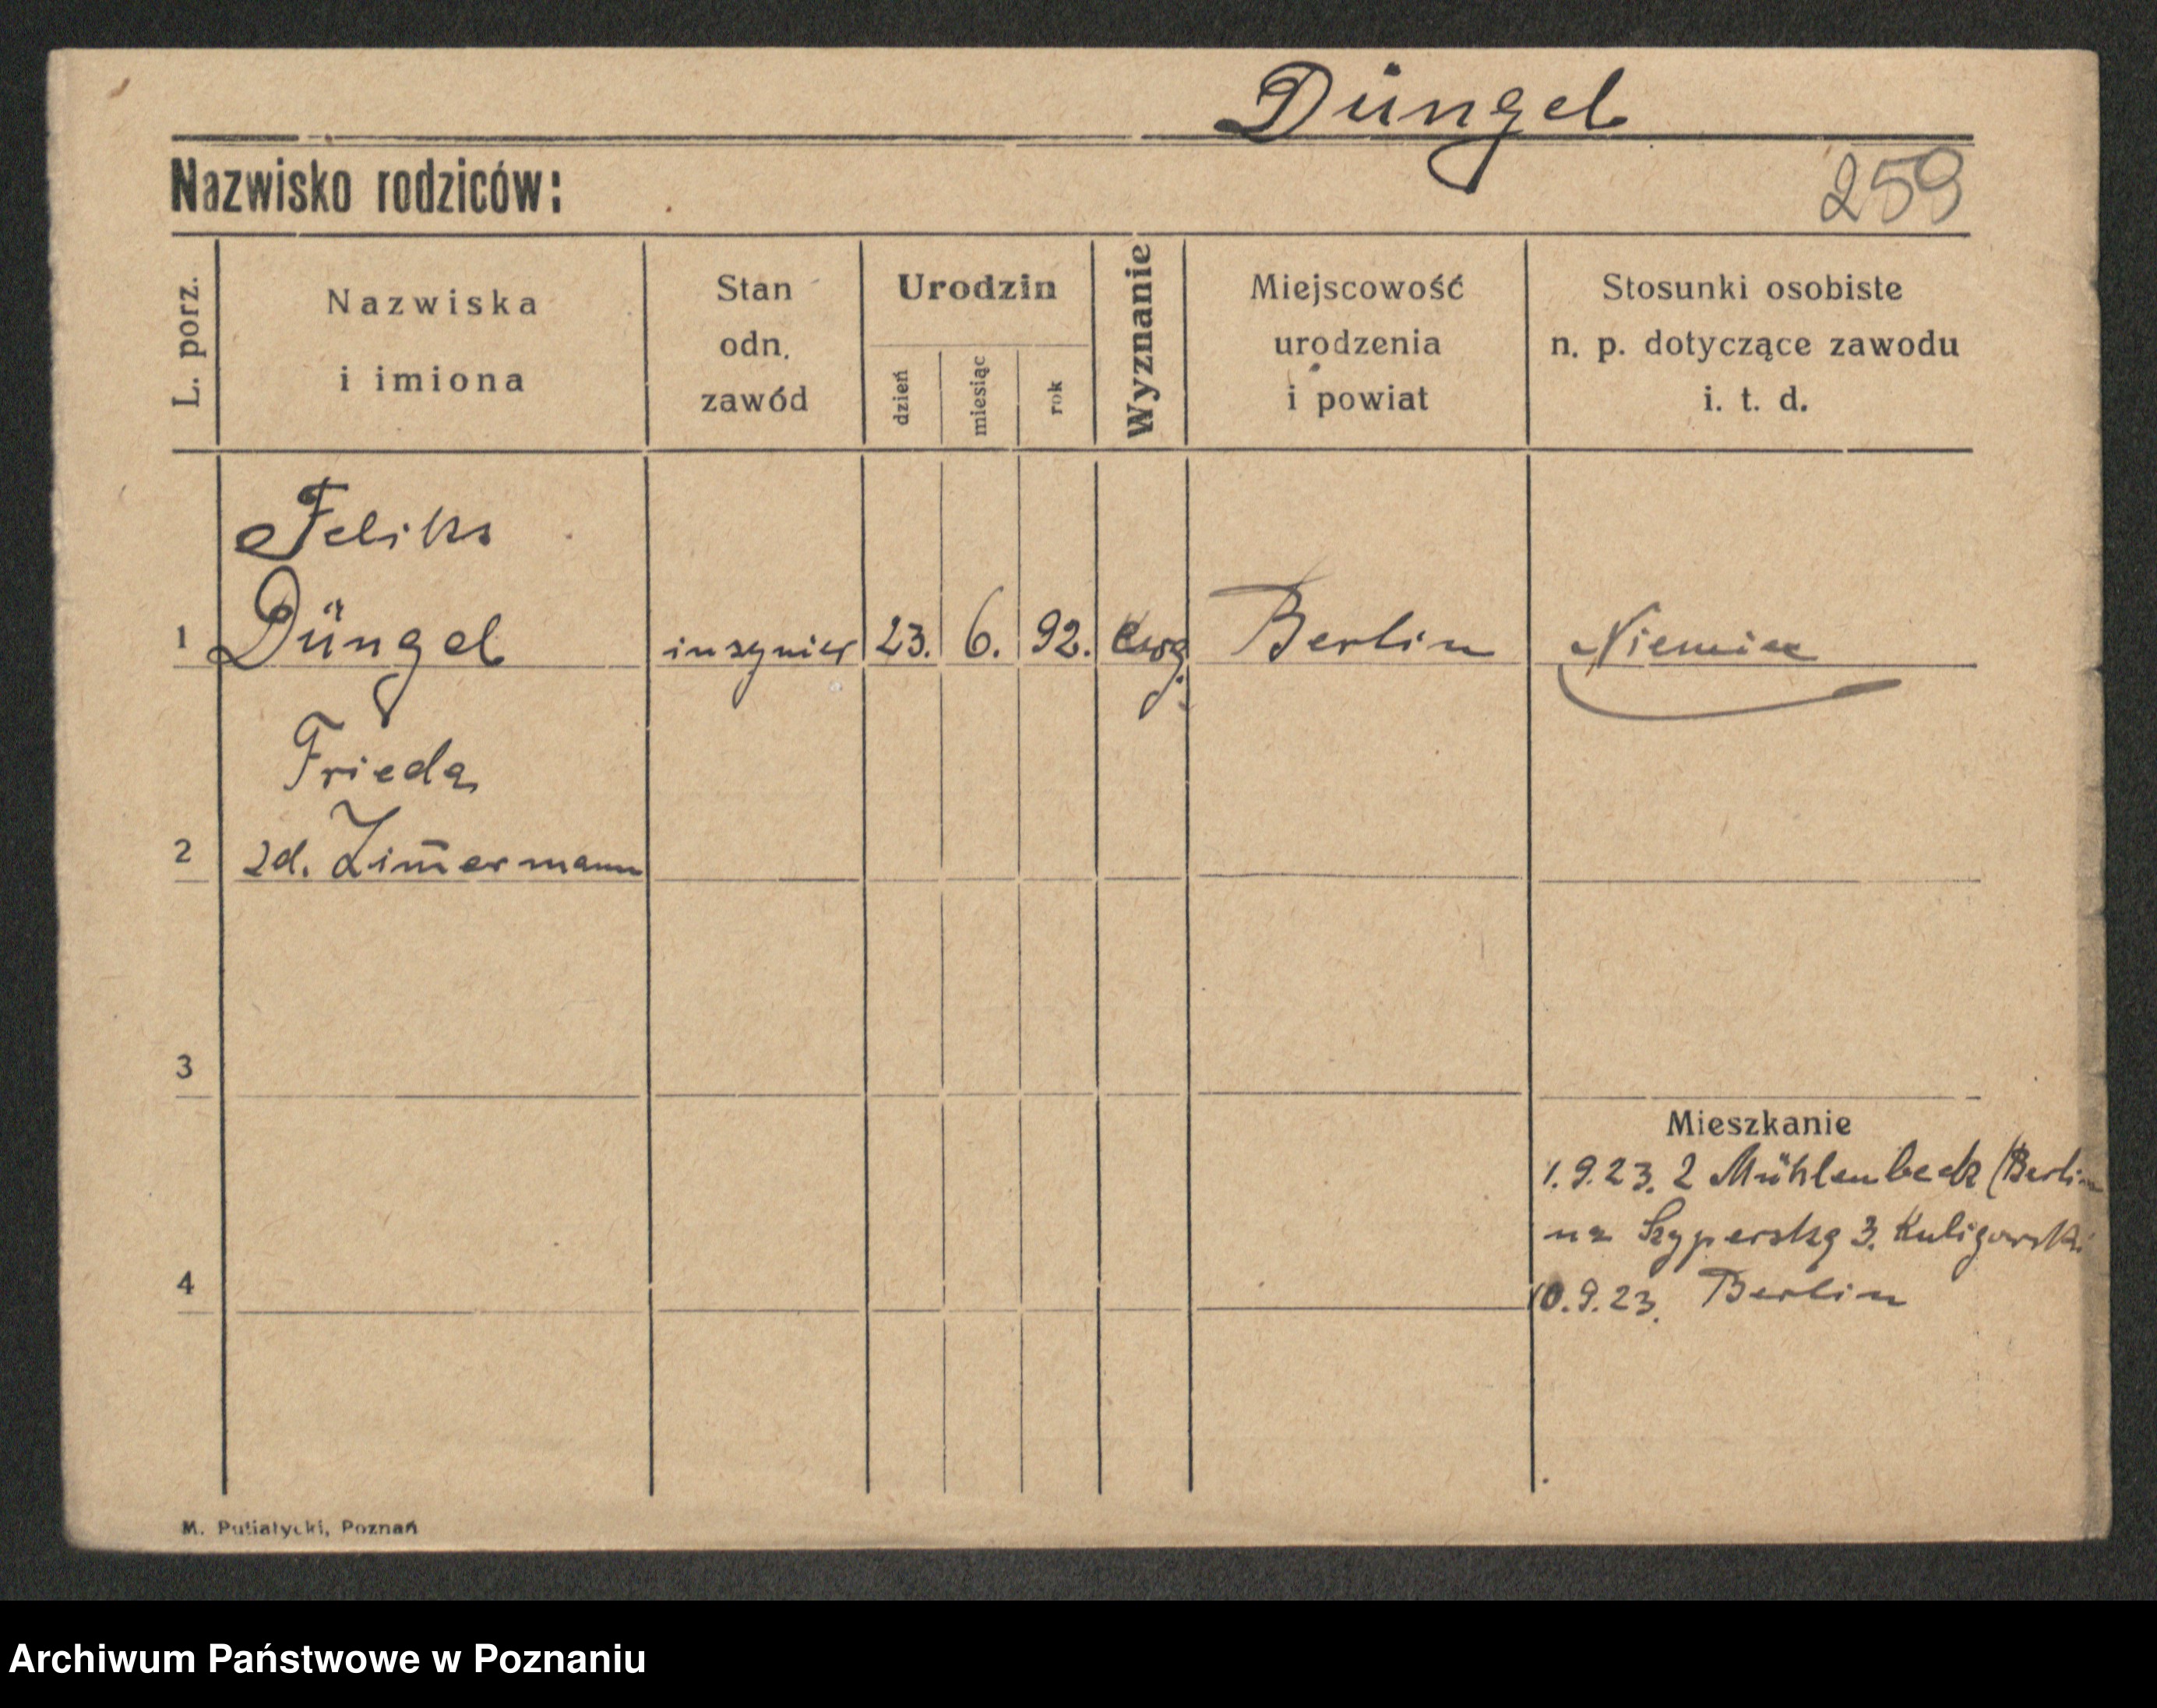 Düngel
Nazwisko rodziców:
259
L. porz.
Nazwiska
i imiona
Stan
odn.
zawód
Urodzin
dzień
miesiąc
rok
Wyznanie
Miejscowość
urodzenia
i powiat
Stosunki osobiste
n. p. dotyczące zawodu
i. t. d.
Feliks
1 Düngel inżynier 23. 6. 92. ewg. Berlin Niemiec
Frieda
2 zd. Zim̄ermann
3
Mieszkanie
1.9.23. z Mühlenbeck (Berlin
na Szyperską 3. Kuligowski
4
10.9.23. Berlin
M. Putiatycki, Poznań
Archiwum Państwowe w Poznaniu